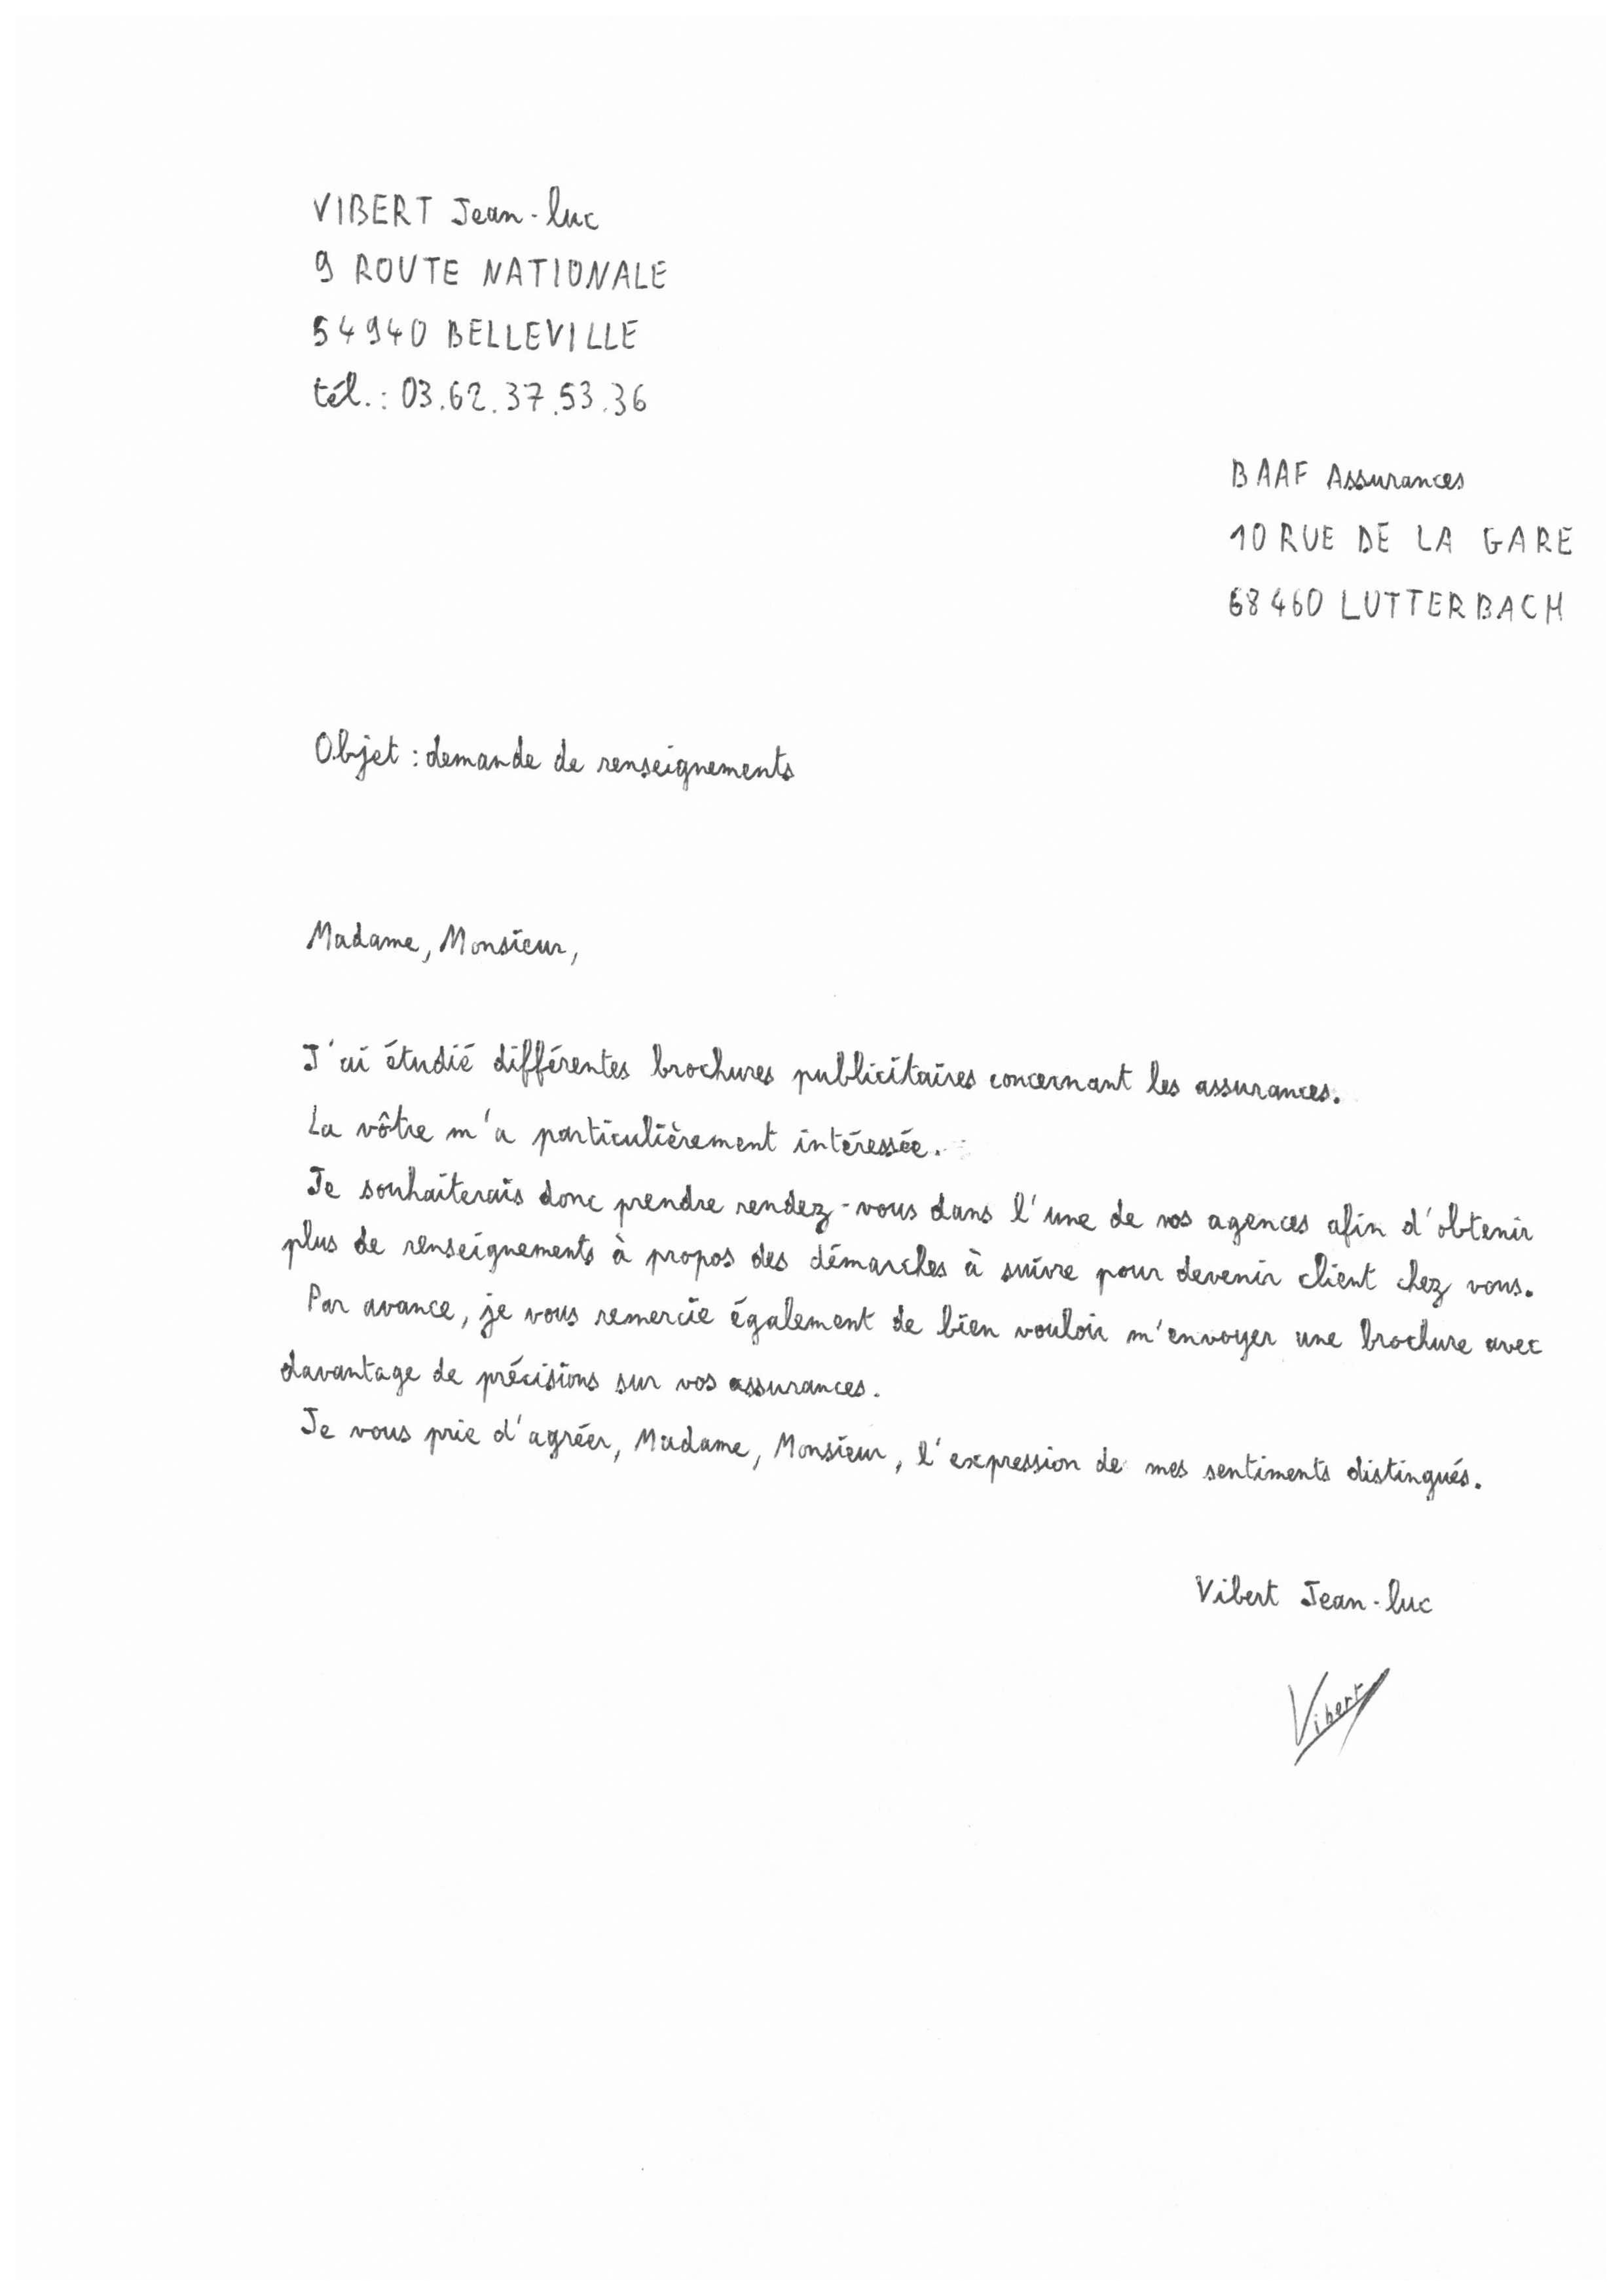 VIBERT Jean-luc
9 ROUTE NATIONALE
54940 BELLEVILLE
tél.: 03.62.37.53.36
BAAF Assurances
10 RUE DE LA GARE
68460 LUTTERBACH
Objet : demande de renseignements
Madame, Monsieur,
J'ai étudié différentes brochures publicitaires concernant les assurances.
La vôtre m'a particulièrement intéressée.
Je souhaiterais donc prendre rendez-vous dans l'une de vos agences afin d'obtenir
plus de renseignements à propos des démarches à suivre pour devenir client chez vous.
Par avance, je vous remercie également de bien vouloir m'envoyer une brochure avec
davantage de précisions sur vos assurances.
Je vous prie d'agréer, Madame, Monsieur, l'expression de mes sentiments distingués.
Vibert Jean-luc
Vibert